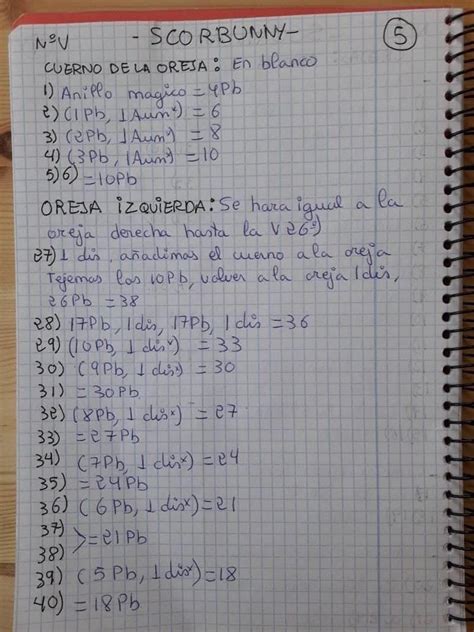 NºV - SCORBUNNY - 5
CUERNO DE LA OREJA: En blanco
1) Anillo magico = 4Pb
2) (1Pb, 1Aumˣ) = 6
3) (2Pb, 1Aumˣ) = 8
4) (3Pb, 1Aumˣ) = 10
5)6) = 10Pb
OREJA IZQUIERDA: Se hara igual a la
oreja derecha hasta la V26º)
27) 1 dis, añadimos el cuerno a la oreja
Tejemos los 10Pb, volver a la oreja 1dis,
26Pb = 38
28) 17Pb, 1dis, 17Pb, 1dis = 36
29) (10Pb, 1disˣ) = 33
30) (9Pb, 1disˣ) = 30
31) = 30Pb
32) (8Pb, 1disˣ) = 27
33) = 27Pb
34) (7Pb, 1disˣ) = 24
35) = 24Pb
36) (6Pb, 1disˣ) = 21
37)
38) > = 21Pb
39) (5Pb, 1disˣ) = 18
40) = 18Pb